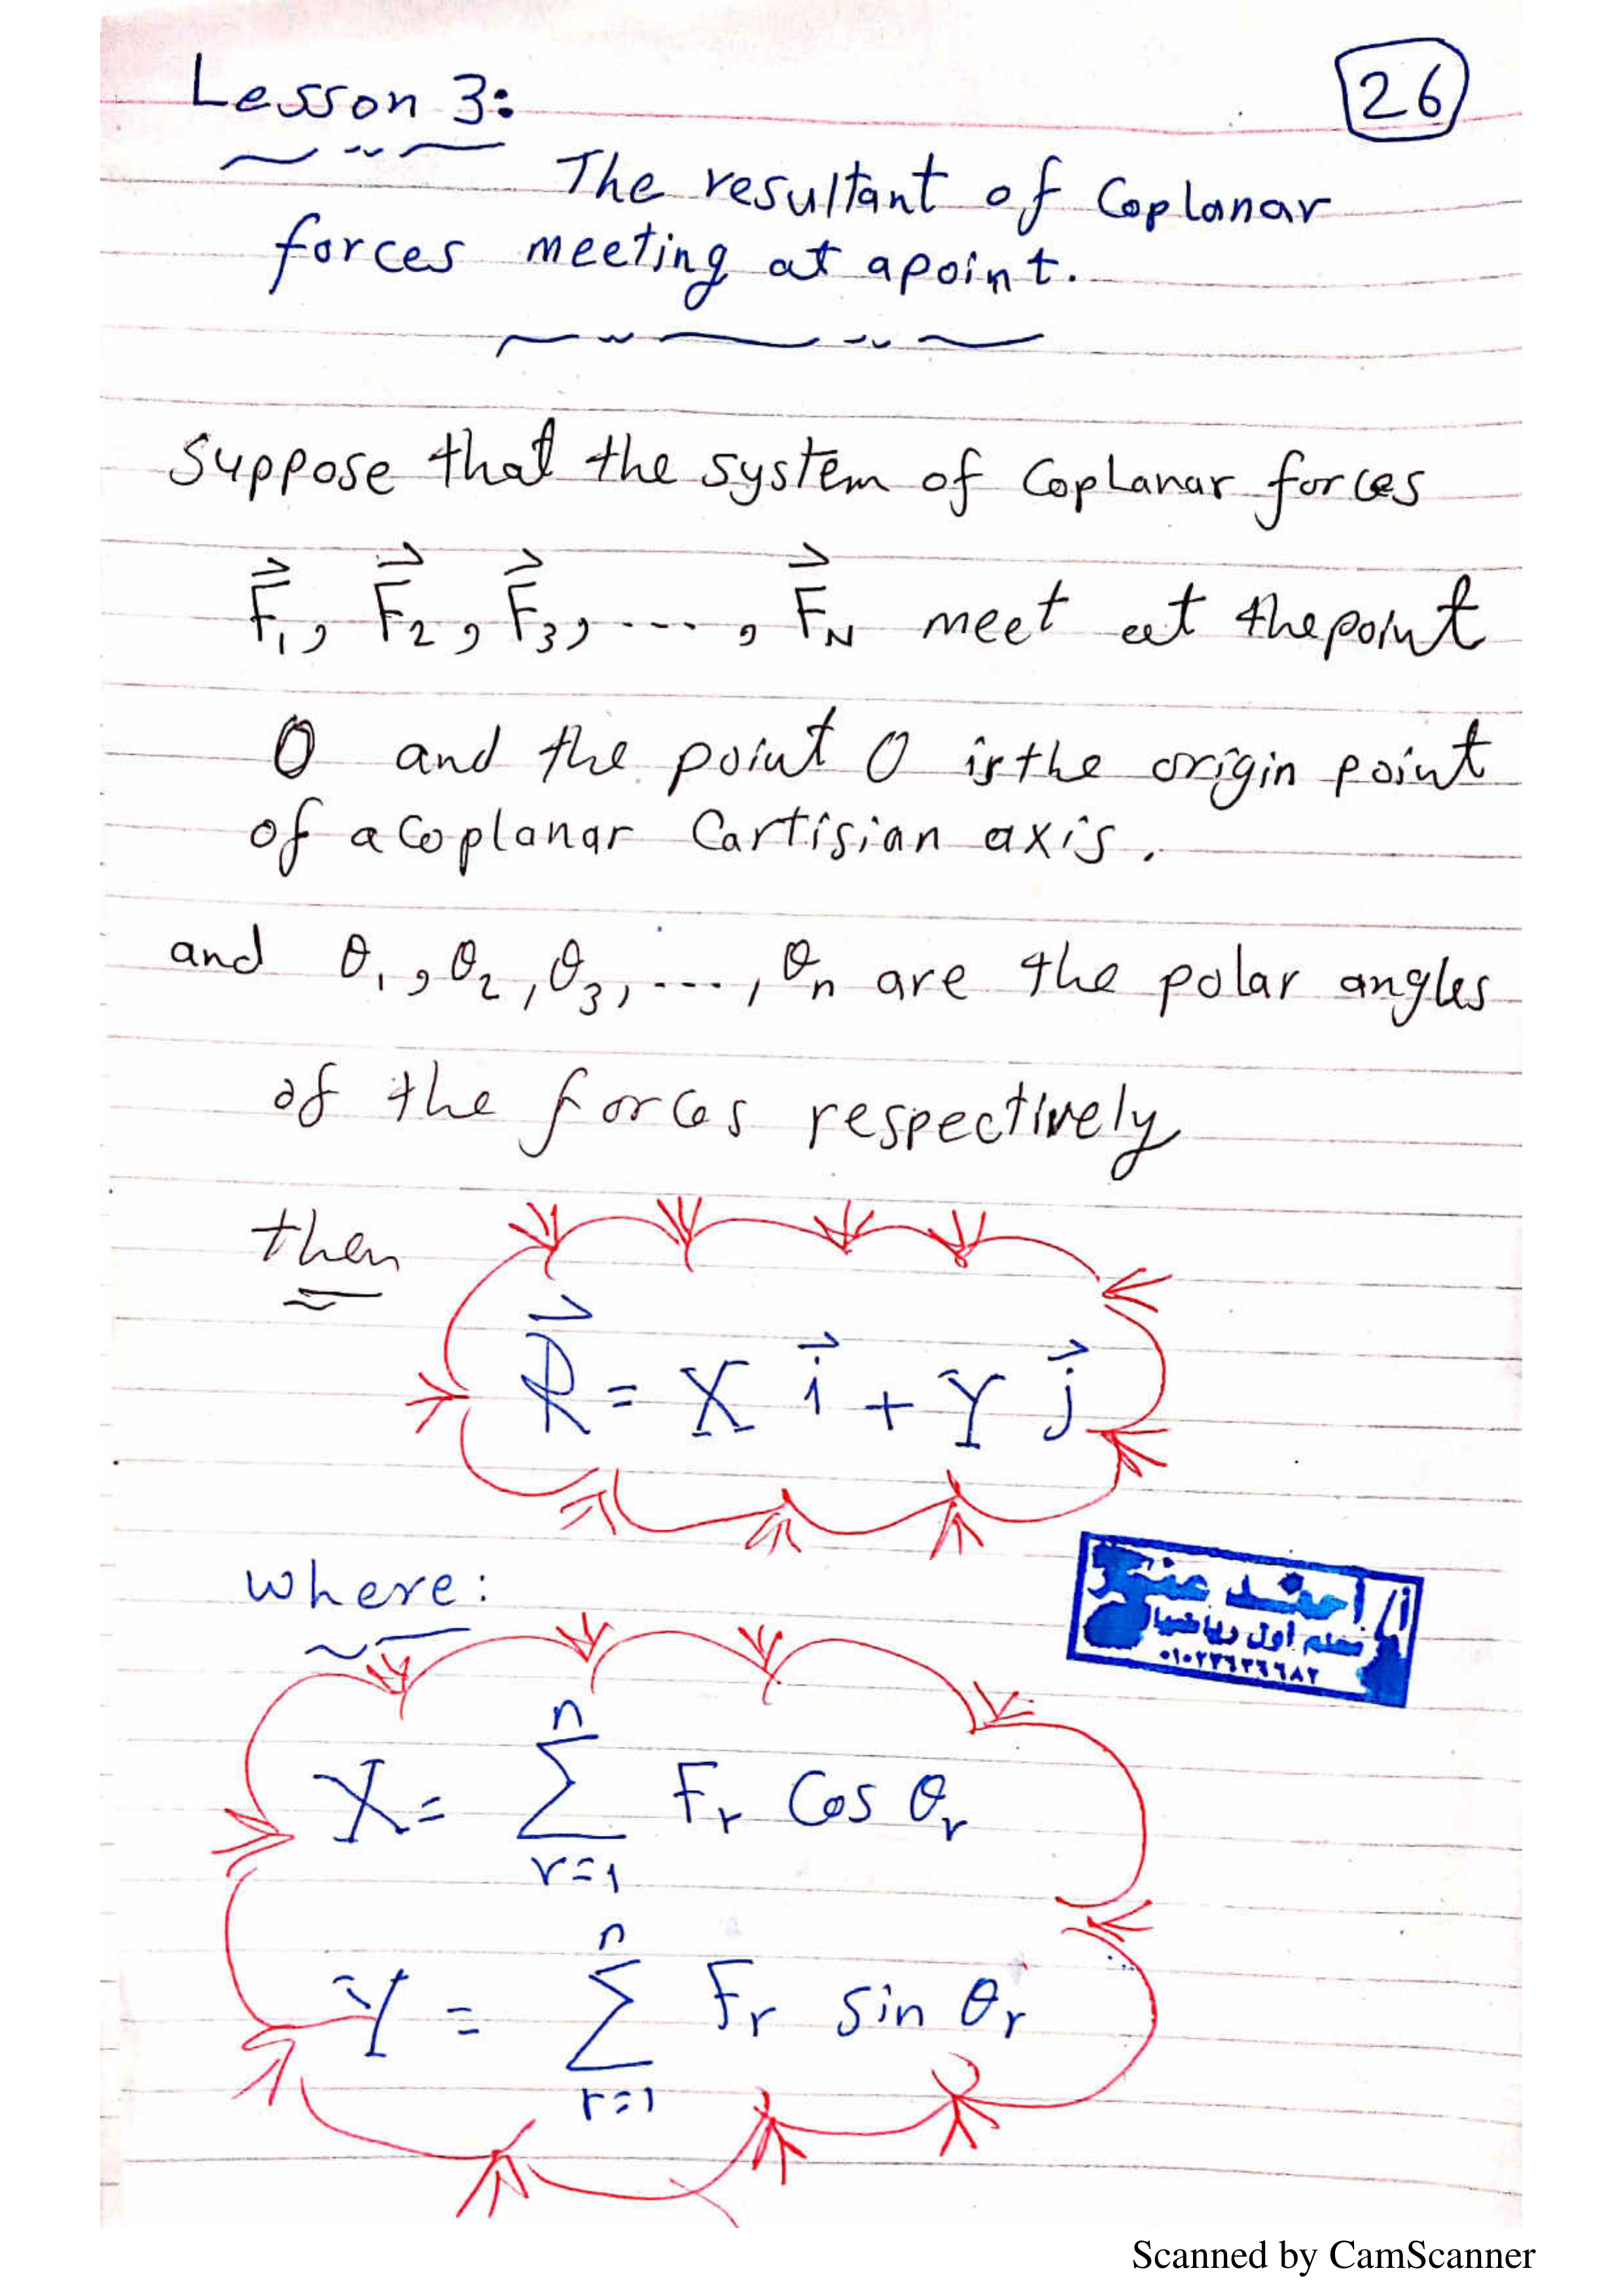 Lesson 3:
26
The resultant of Coplanar
forces meeting at apoint.
Suppose that the system of CopLanar forces
F⃗₁, F⃗₂, F⃗₃, ..., F⃗_N meet at the point
O and the point O is the origin point
of a Coplanar Cartisian axis.
and θ₁, θ₂, θ₃, ..., θₙ are the polar angles
of the forces respectively
then
R⃗ = X i⃗ + Y j⃗
where:
أ/ احمد
معلم أول رياضيات
X = n Σ r=1 Fᵣ Cos θᵣ
Y = n Σ r=1 Fᵣ sin θᵣ
Scanned by CamScanner